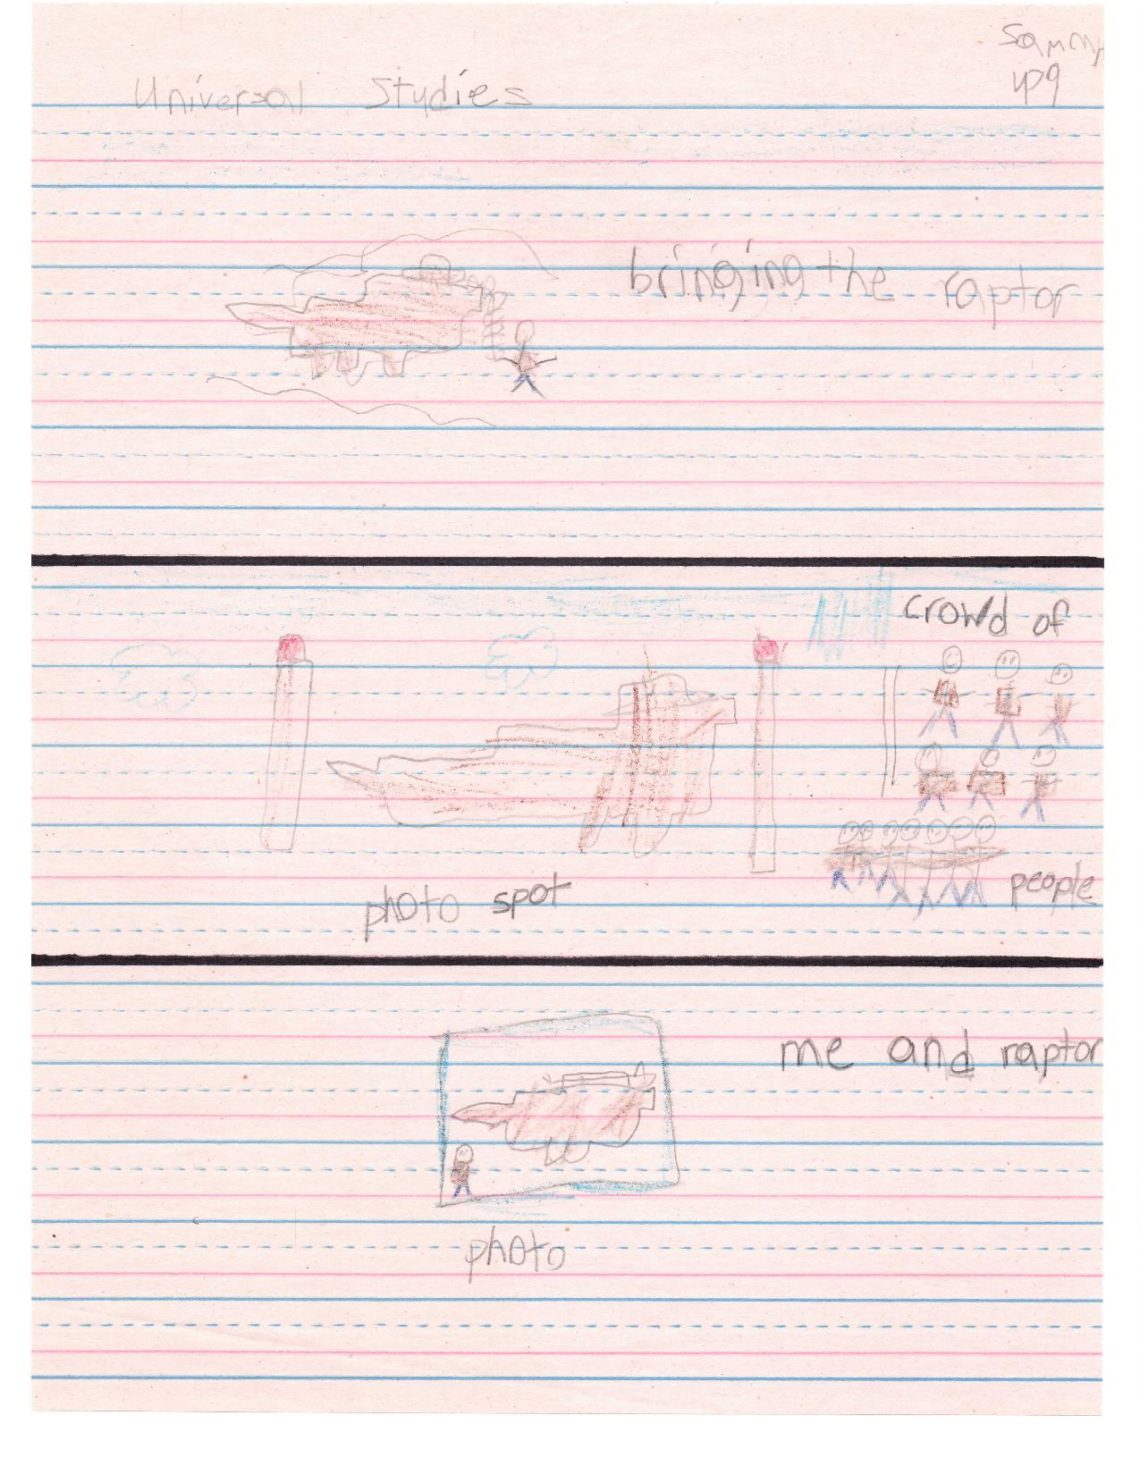 Sammy
Universal Studies
bringing the raptor
crowd of
people
photo spot
me and raptor
photo